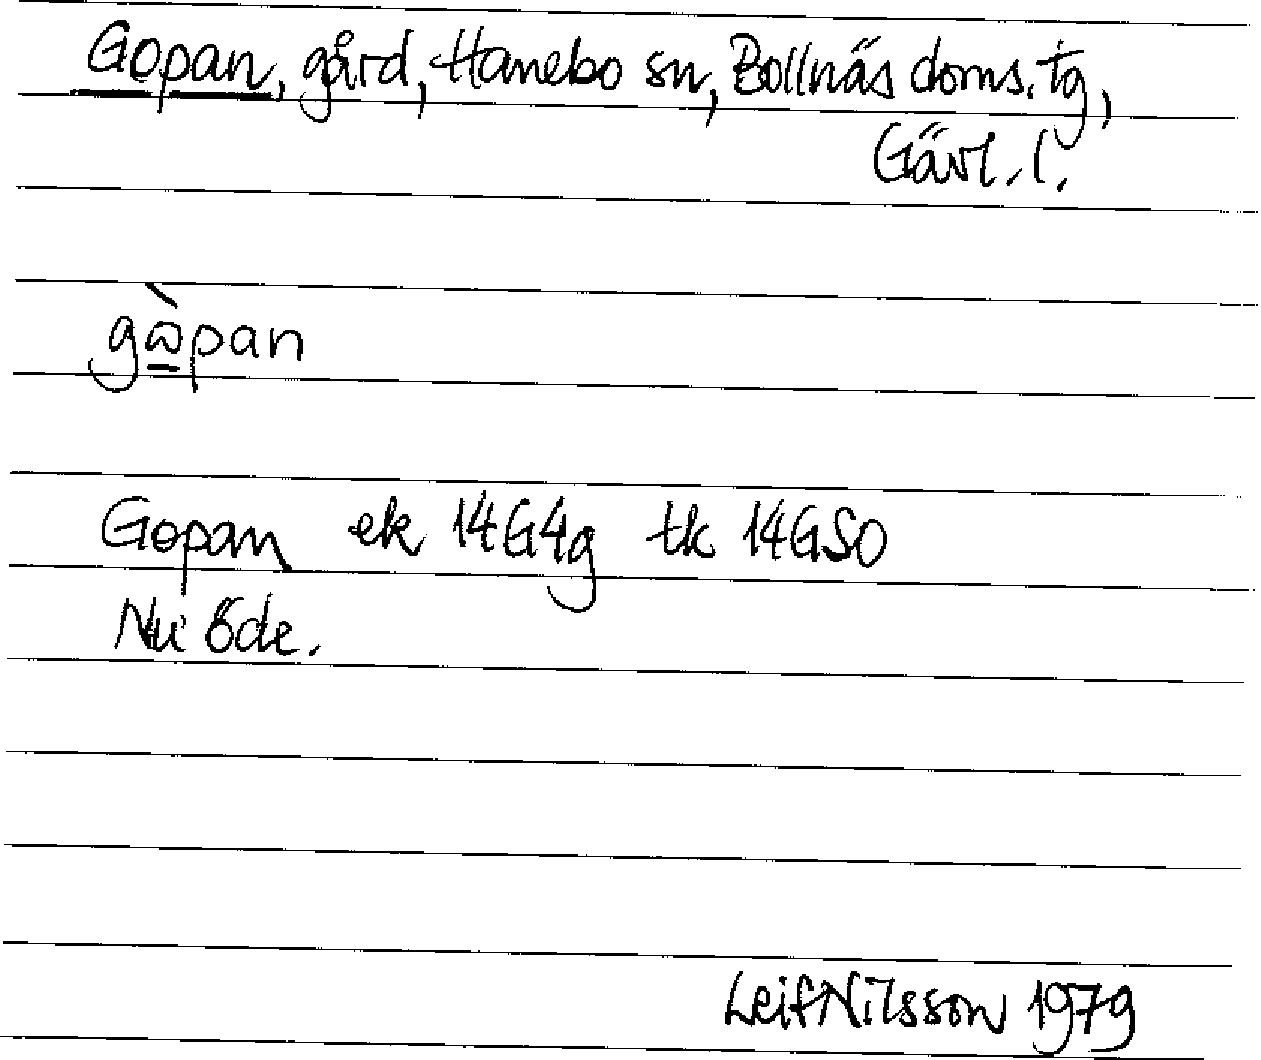 Gopan, gård, Hanebo sn, Bollnäs doms. tg,
Gävl. l.
gὼ̱pan
Gopan ek 14G4g tk 14GSO
Nu öde.
Leif Nilsson 1979